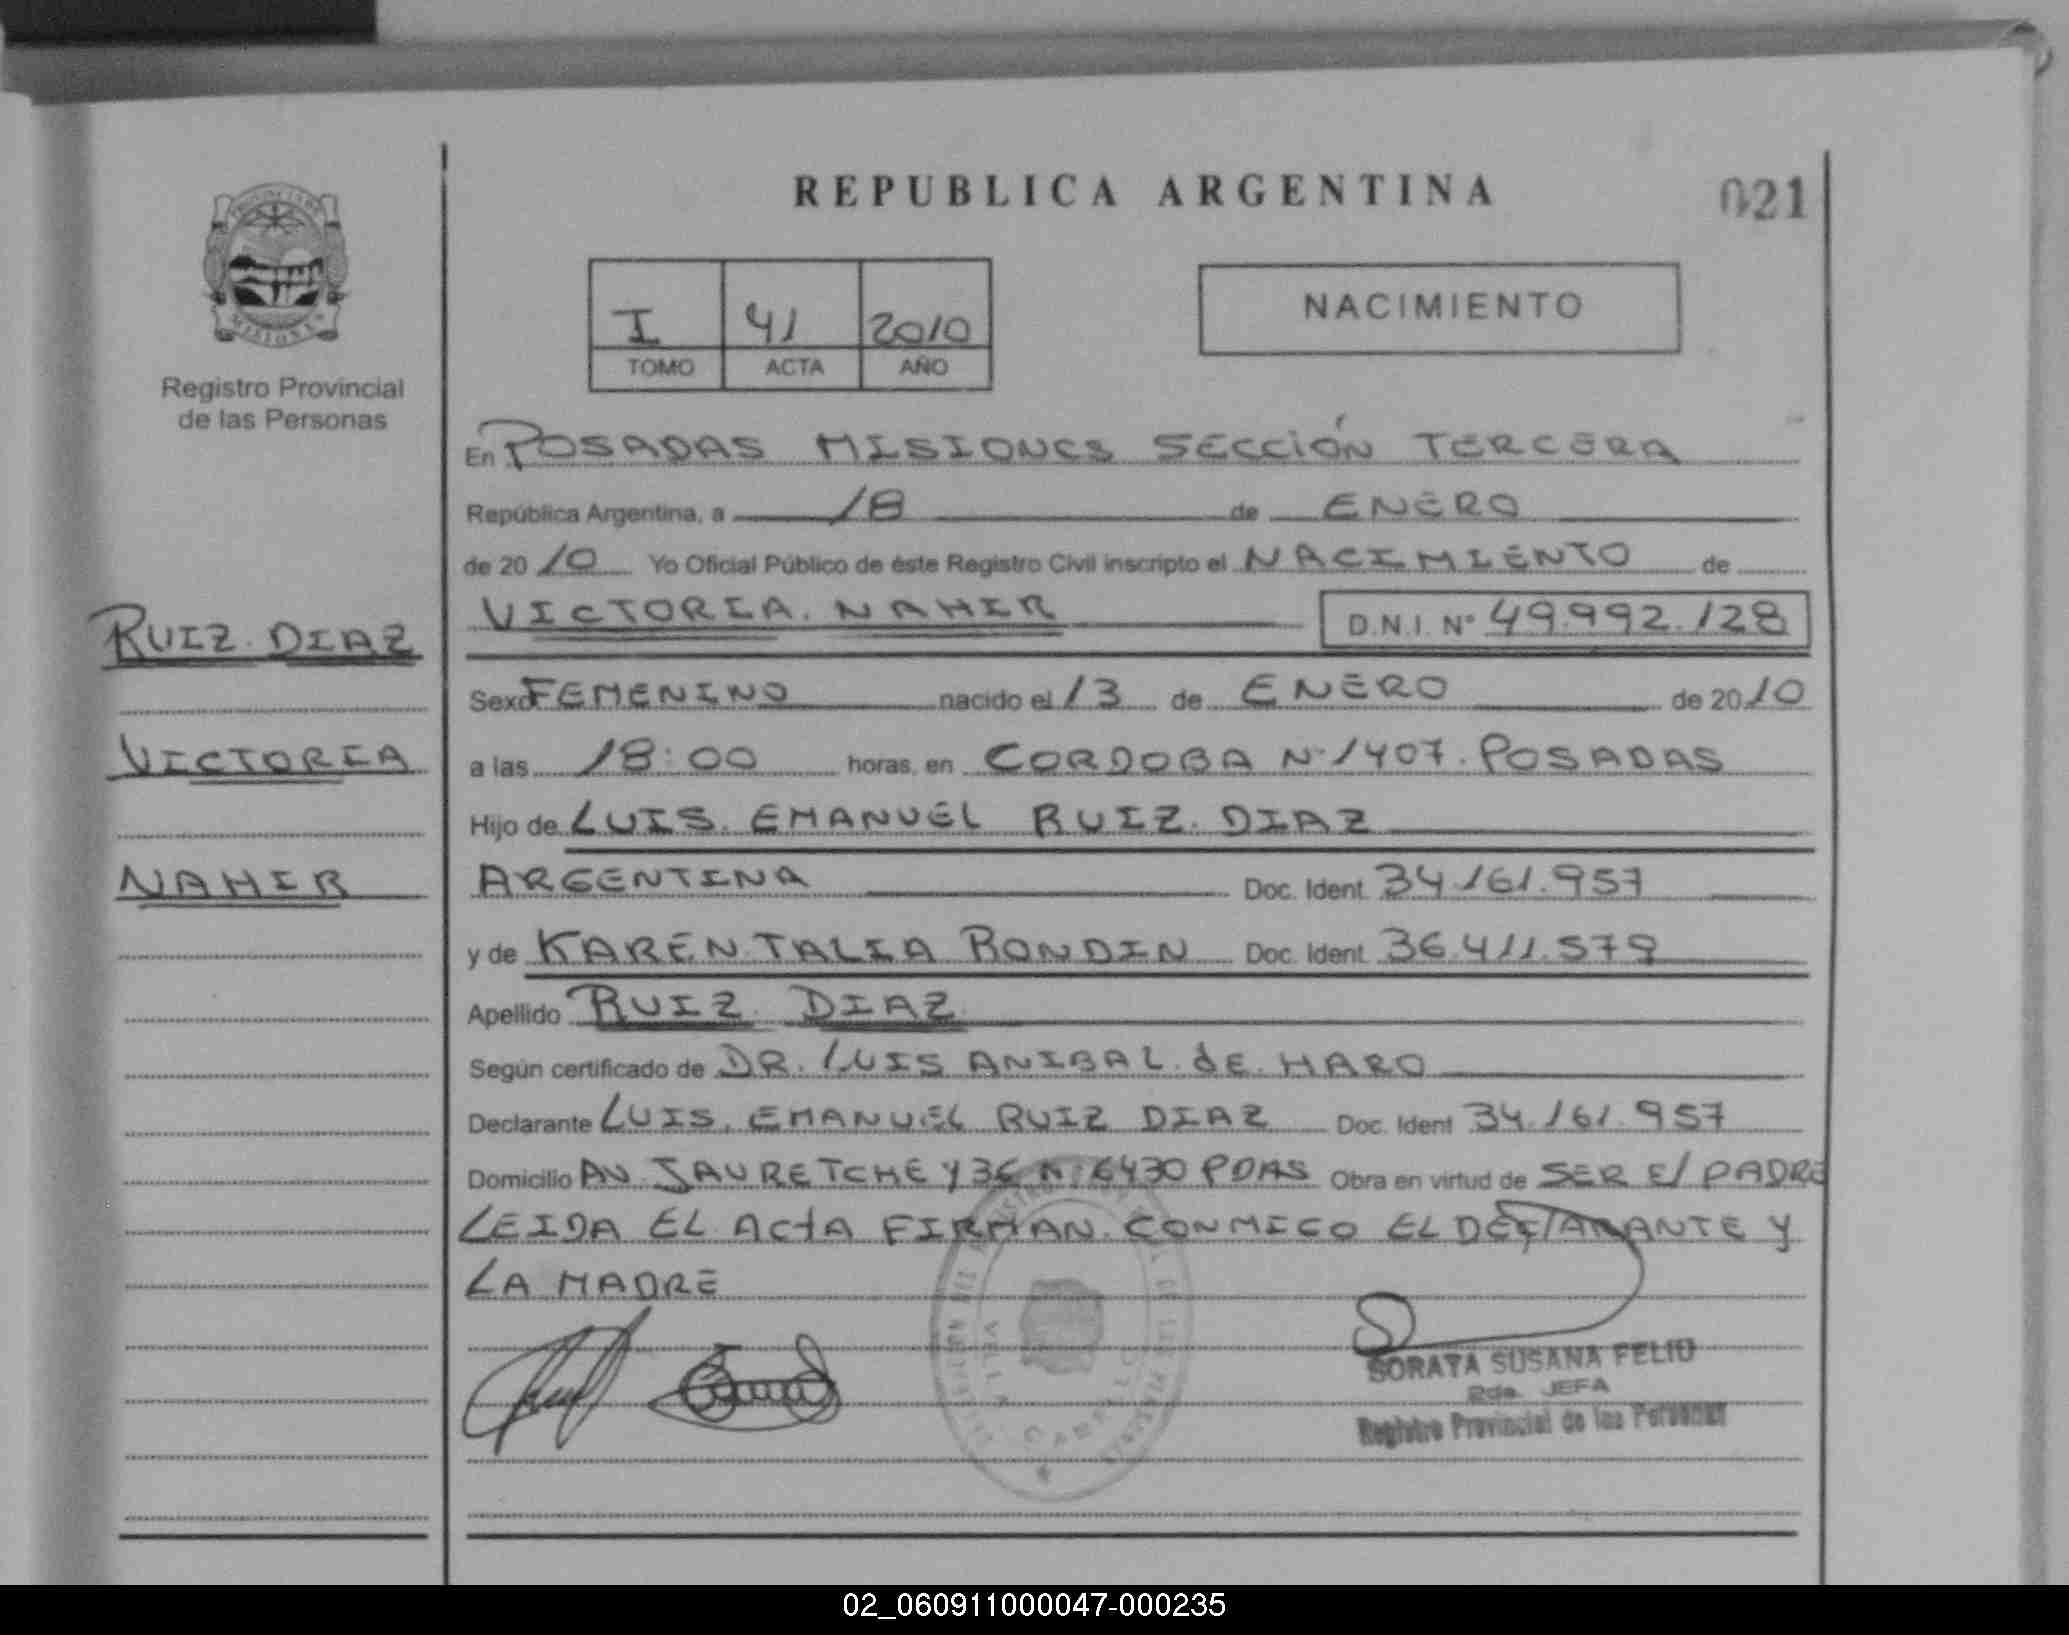 REPUBLICA ARGENTINA
021
PROVINCIA DE
MISIONES
Registro Provincial
de las Personas
I 41 2010
TOMO ACTA AÑO
NACIMIENTO
En POSADAS MISIONES SECCIÓN TERCERA
República Argentina, a 18 de ENERO
de 2010 Yo Oficial Público de éste Registro Civil inscripto el NACIMIENTO de
VICTORIA. NAHIR D.N.I. Nº 49.992.128
RUIZ. DIAZ
VICTORIA
NAHIR
Sexo FEMENINO nacido el 13 de ENERO de 2010
a las 18:00 horas, en CORDOBA Nº 1407. POSADAS
Hijo de LUIS. EMANUEL RUIZ. DIAZ
ARGENTINA Doc. Ident. 34.161.957
y de KAREN. TALIA RONDIN Doc. Ident. 36.411.579
Apellido RUIZ. DIAZ
Según certificado de DR. LUIS ANIBAL. dE. HARO
Declarante LUIS. EMANUEL RUIZ DIAZ Doc. Ident 34.161.957
Domicilio AV. JAURETCHE Y 36 Nº 6430 PDAS Obra en virtud de SER El PADRE
LEIDA EL ACtA FIRMAN. CONMIGO EL DEClARANTE Y
LA MADRE
SORAYA SUSANA FELIU
2da. JEFA
Registro Provincial de las Personas
02_060911000047-000235